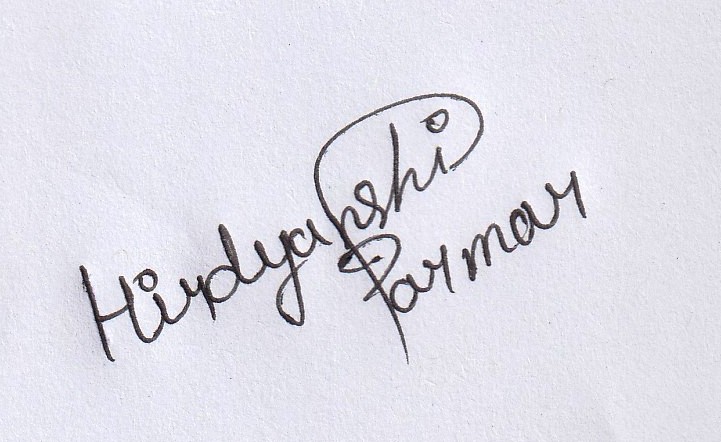 Hirdyanshi
Parmar